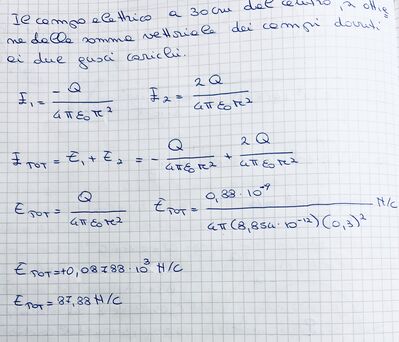 Il campo elettrico a 30cm dal centro, si ottie
ne dalla somma vettoriale dei campi dovuti
ai due gusci carichi.
E₁ = -Q / 4πε₀r² E₂ = 2Q / 4πε₀r²
E TOT = E₁ + E₂ = - Q / 4πε₀r² + 2Q / 4πε₀r²
E TOT = Q / 4πε₀r² E TOT = 0,88·10⁻⁹ / 4π(8,854·10⁻¹²)(0,3)² N/C
E TOT = +0,08788·10³ N/C
E TOT = 87,88 N/C